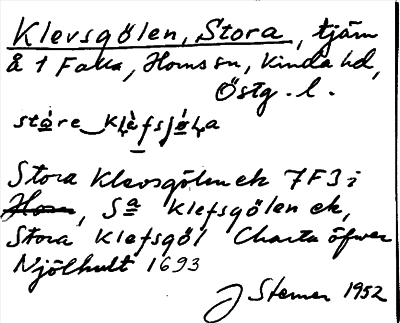 Klevsgölen, Stora, tjärn
å 1 Falla, Horns sn, Kinda hd,
Östg. l.
Stora Klevsgölen ek 7F3i
Horn, Sa Klefsgölen ek,
Stora Klefsgöl Charta öfwer
Njölhult 1693
J Stemer 1952